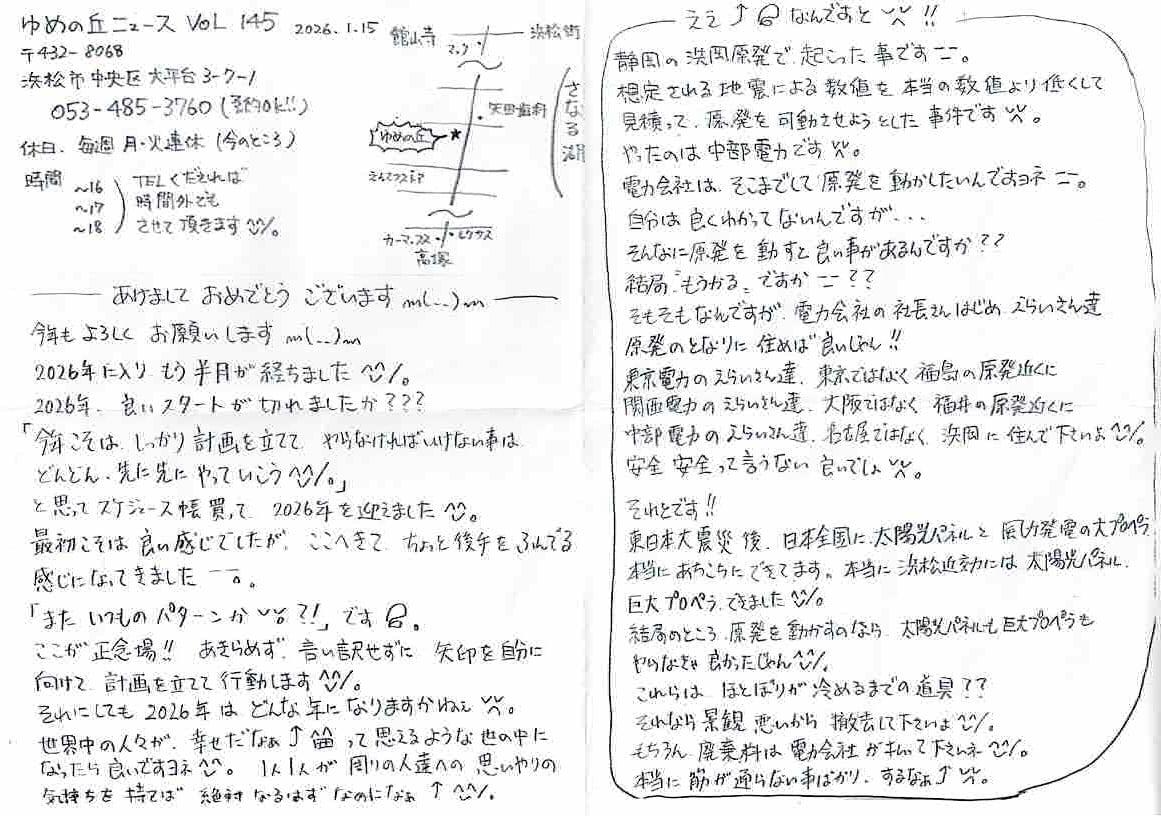 ゆめの丘ニュース VOL 145 2026.1.15
〒432-8068
浜松市中央区大平台3-7-1
053-485-3760(予約OK!!)
休日、毎週 月・火連休 (今のところ)
時間 ~16
~17
~18
TELくだされば
時間外でも
させて頂きます
舘山寺
マック
浜松街
矢田歯科
さなる湖
ゆめの丘
カーマ
レクサス
高塚
あけまして おめでとう ございます m(_ _)m
今年も よろしく お願いします m(_ _)m
2026年に入り もう 半月が 経ちました ^^。
2026年、良いスタートが 切れましたか???
「今年こそは、しっかり計画を立てて やらなければいけない事は
どんどん、先に先に やっていこう ^^。」
と思って スケジュース帳 買って、2026年を迎えました ^^。
最初こそは 良い感じでしたが、ここへきて、ちょっと後手をふんでる
感じになってきました ーー。。
「また いつもの パターンか ?!」です 。
ここが 正念場!! あきらめず、言い訳せずに 矢印を自分に
向けて、計画を立てて 行動します ^^。
それにしても 2026年は どんな年に なりますかねぇ 。
世界中の人々が、幸せだなぁ↑ って思えるような 世の中に
なったら 良いですヨネ ^^。 1人1人が 周りの人達への 思いやりの
気持ちを 持てば 絶対 なるはず なのになぁ ↑ ^^。
ええ↑ なんですと !!
静岡の 浜岡原発で、起こった 事です ーー。
想定される 地震による 数値を 本当の数値より 低くして
見積って、原発を 可動させようとした 事件です 。
やったのは 中部電力です 。
電力会社は、そこまでして 原発を 動かしたいんですヨネ ーー。
自分は 良くわかってないんですが...
そんなに原発を 動すと 良い事があるんですか??
結局 "もうかる" ですか ーー??
そもそも なんですが、電力会社の 社長さんはじめ えらいさん達
原発のとなりに 住めば 良いじゃん!!
東京電力の えらいさん達、東京ではなく 福島の 原発近くに
関西電力の えらいさん達、大阪ではなく 福井の 原発近くに
中部電力の えらいさん達、名古屋ではなく、浜岡に 住んで下さいよ ^^。
安全 安全って言うなら 良いでしょ 。
それとです!!
東日本大震災後、日本全国に、太陽光パネルと 風力発電の大プロペラ
本当に あちこちに できてます。本当に 浜松近効には 太陽光パネル、
巨大プロペラ、できました ^^。
結局のところ、原発を動かすのなら、太陽光パネルも 巨大プロペラも
やらなきゃ 良かったじゃん ^^。
これらは、ほとぼりが 冷めるまでの 道具??
それなら 景観 悪いから 撤去して下さいよ ^^。
もちろん、廃棄料は 電力会社が 払って下さいネ ^^。
本当に 筋が 通らない事ばかり、するなぁ↑ 。